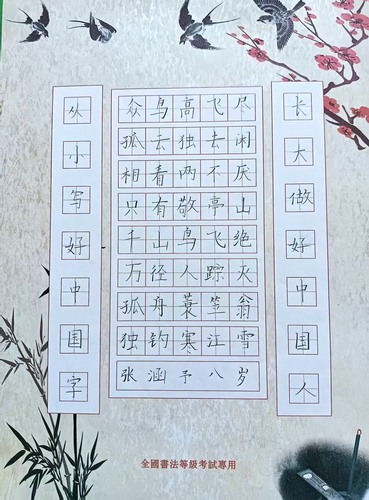 从小写好中国字
众鸟高飞尽
孤云独去闲
相看两不厌
只有敬亭山
千山鸟飞绝
万径人踪灭
孤舟蓑笠翁
独钓寒江雪
张涵予八岁
长大做好中国人
全國書法等級考試專用